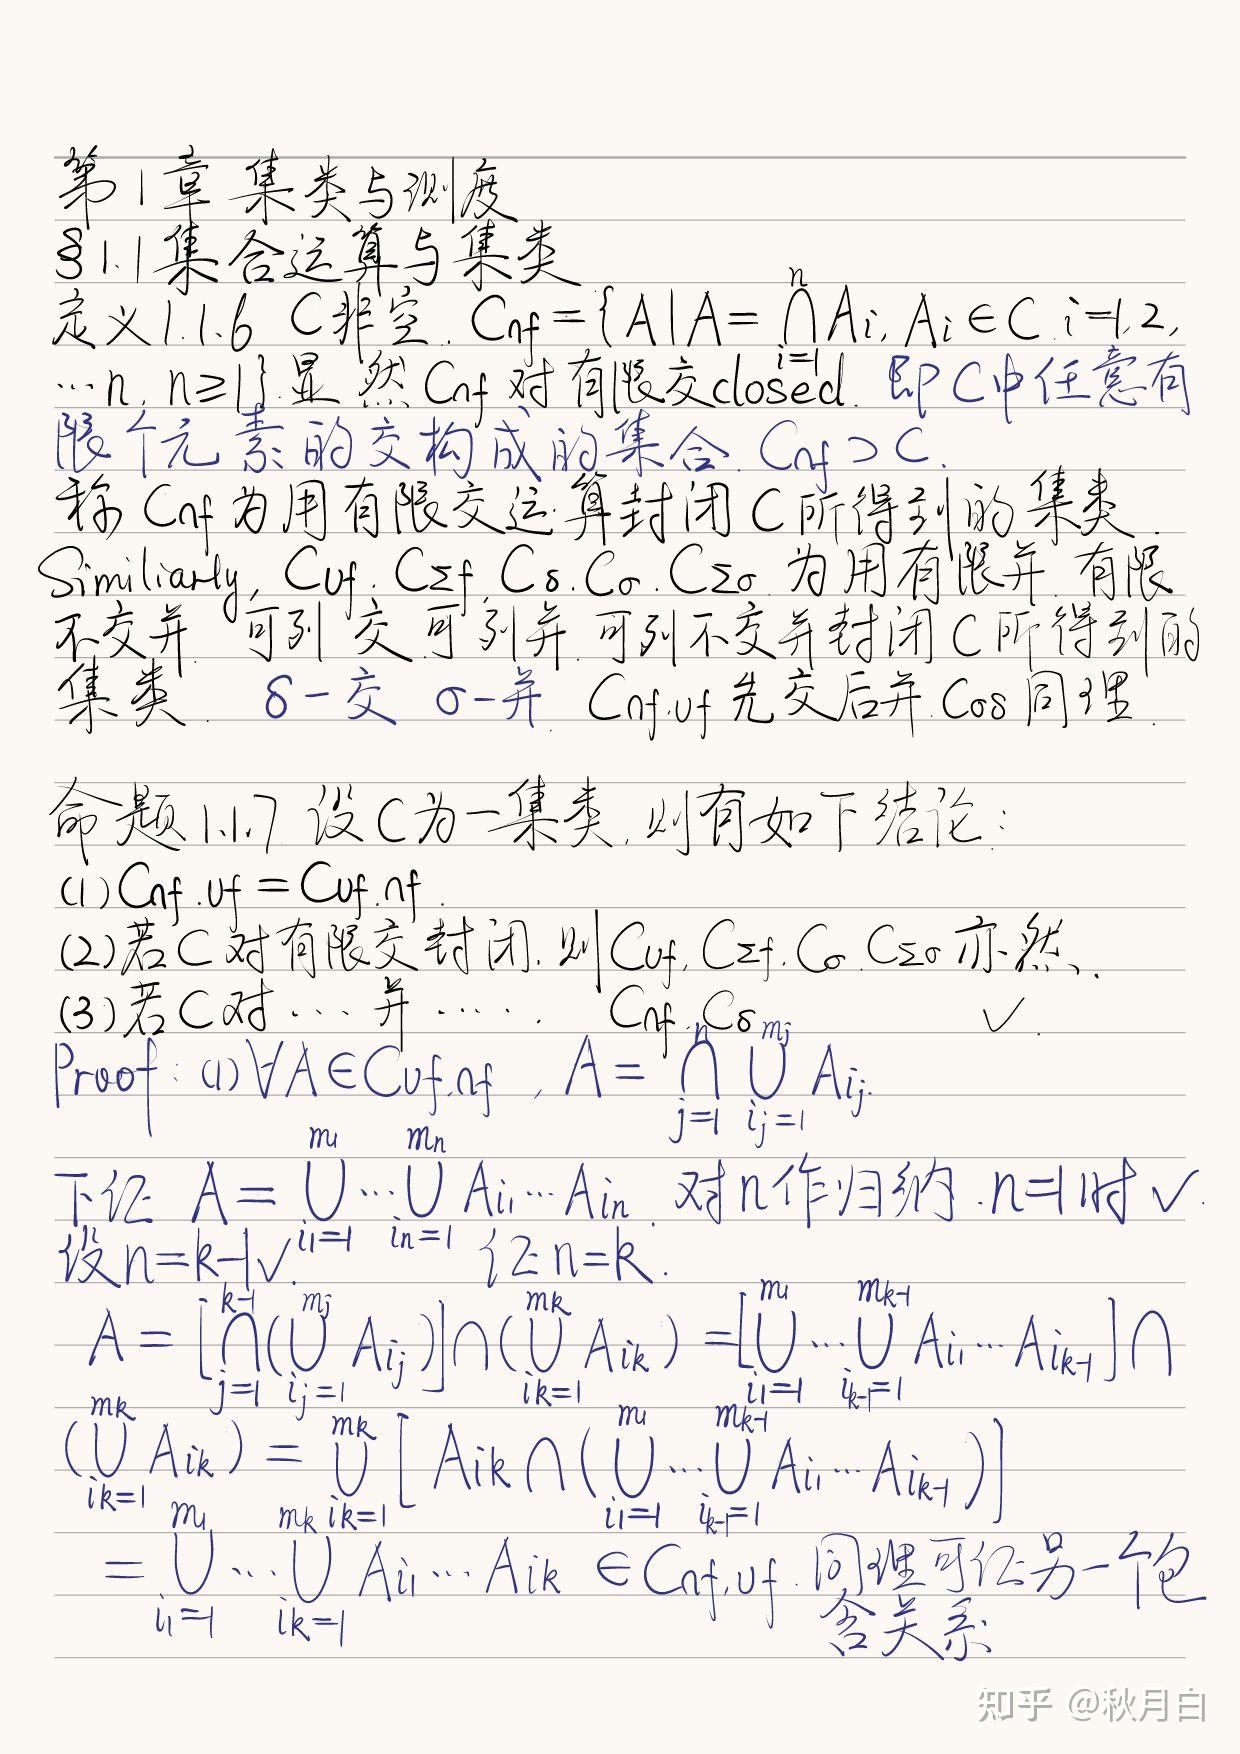 第1章 集类与测度
§1.1集合运算与集类
定义1.1.6 C非空. C∩f={A|A=⋂_{i=1}^{n}Ai, Ai∈C.i=1,2,
…n, n≥1}.显然C∩f对有限交closed. 即C中任意有
限个元素的交构成的集合. C∩f⊃C.
称C∩f为用有限交运算封闭C所得到的集类.
Similiarly, C∪f. CΣf, Cδ. Cσ. CΣσ 为用有限并.有限
不交并.可列交.可列并.可列不交并封闭C所得到的
集类. δ-交 σ-并. C∩f.∪f先交后并.Cσδ同理.
命题1.1.7 设C为一集类,则有如下结论:
(1)C∩f.∪f=C∪f.∩f.
(2)若C对有限交封闭.则C∪f, CΣf. Cσ. CΣσ亦然.
(3)若C对…并……. C∩f.Cδ ✓.
Proof: (1)∀A∈C∪f.∩f, A=⋂_{j=1}^{n}⋃_{ij=1}^{mj}Aij.
下证 A=⋃_{i1=1}^{m1}…⋃_{in=1}^{mn}Ai1…Ain. 对n作归纳.n=1时✓.
设n=k-1✓. 证n=k.
A=[⋂_{j=1}^{k-1}(⋃_{ij=1}^{mj}Aij)]∩(⋃_{ik=1}^{mk}Aik)=[⋃_{i1=1}^{m1}…⋃_{ik-1=1}^{mk-1}Ai1…Aik-1]∩
(⋃_{ik=1}^{mk}Aik)=⋃_{ik=1}^{mk}[Aik∩(⋃_{i1=1}^{m1}…⋃_{ik-1=1}^{mk-1}Ai1…Aik-1)]
=⋃_{i1=1}^{m1}…⋃_{ik=1}^{mk}Ai1…Aik∈C∩f,∪f.同理可证另一个包
含关系
知乎 @秋月白